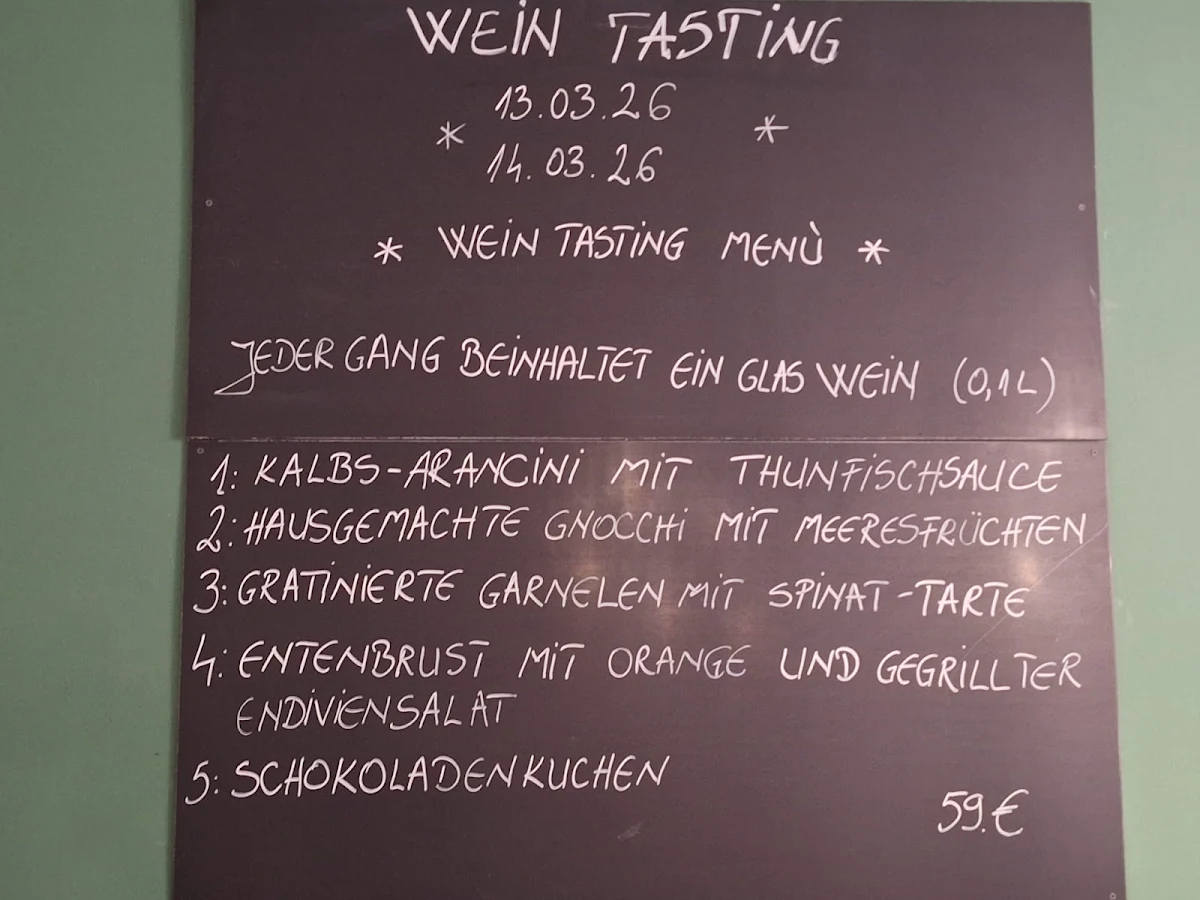 WEIN TASTING
13.03.26
* *
14.03.26
* WEIN TASTING MENÙ *
JEDER GANG BEINHALTET EIN GLAS WEIN (0,1L)
1: KALBS-ARANCINI MIT THUNFISCHSAUCE
2: HAUSGEMACHTE GNOCCHI MIT MEERESFRÜCHTEN
3: GRATINIERTE GARNELEN MIT SPINAT-TARTE
4: ENTENBRUST MIT ORANGE UND GEGRILLTER
ENDIVIENSALAT
5: SCHOKOLADENKUCHEN
59.€